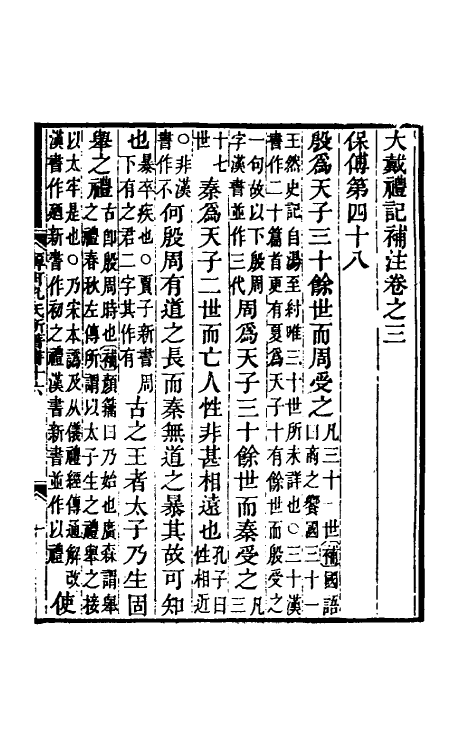 大戴禮記補注卷之三
保傅第四十八
殷爲天子三十餘世而周受之凡三十一世補國語曰商之饗國三十一
王然史記自湯至紂唯三十世所未詳也○三十漢書作二十篇首更有夏爲天子十有餘世而殷受之
一句故以下殷周字漢書作三代周爲天子三十餘世而秦受之凡三
十七世秦爲天子二世而亡人性非甚相遠也孔子曰性相近
○非漢書作不何殷周有道之長而秦無道之暴其故可知
也暴卒疾也○賈子新書周下有之君二字其作有古之王者太子乃生固
舉之禮古卽殷周時也補顔籀曰乃始也廣森謂舉之禮春秋左傳所謂以太子生之禮舉之接
以太牢是也○乃宋本譌及从儀禮經傳通解改漢書作迺新書作初之禮漢書新書並作以禮使
顨軒孔氏所著書十六
一